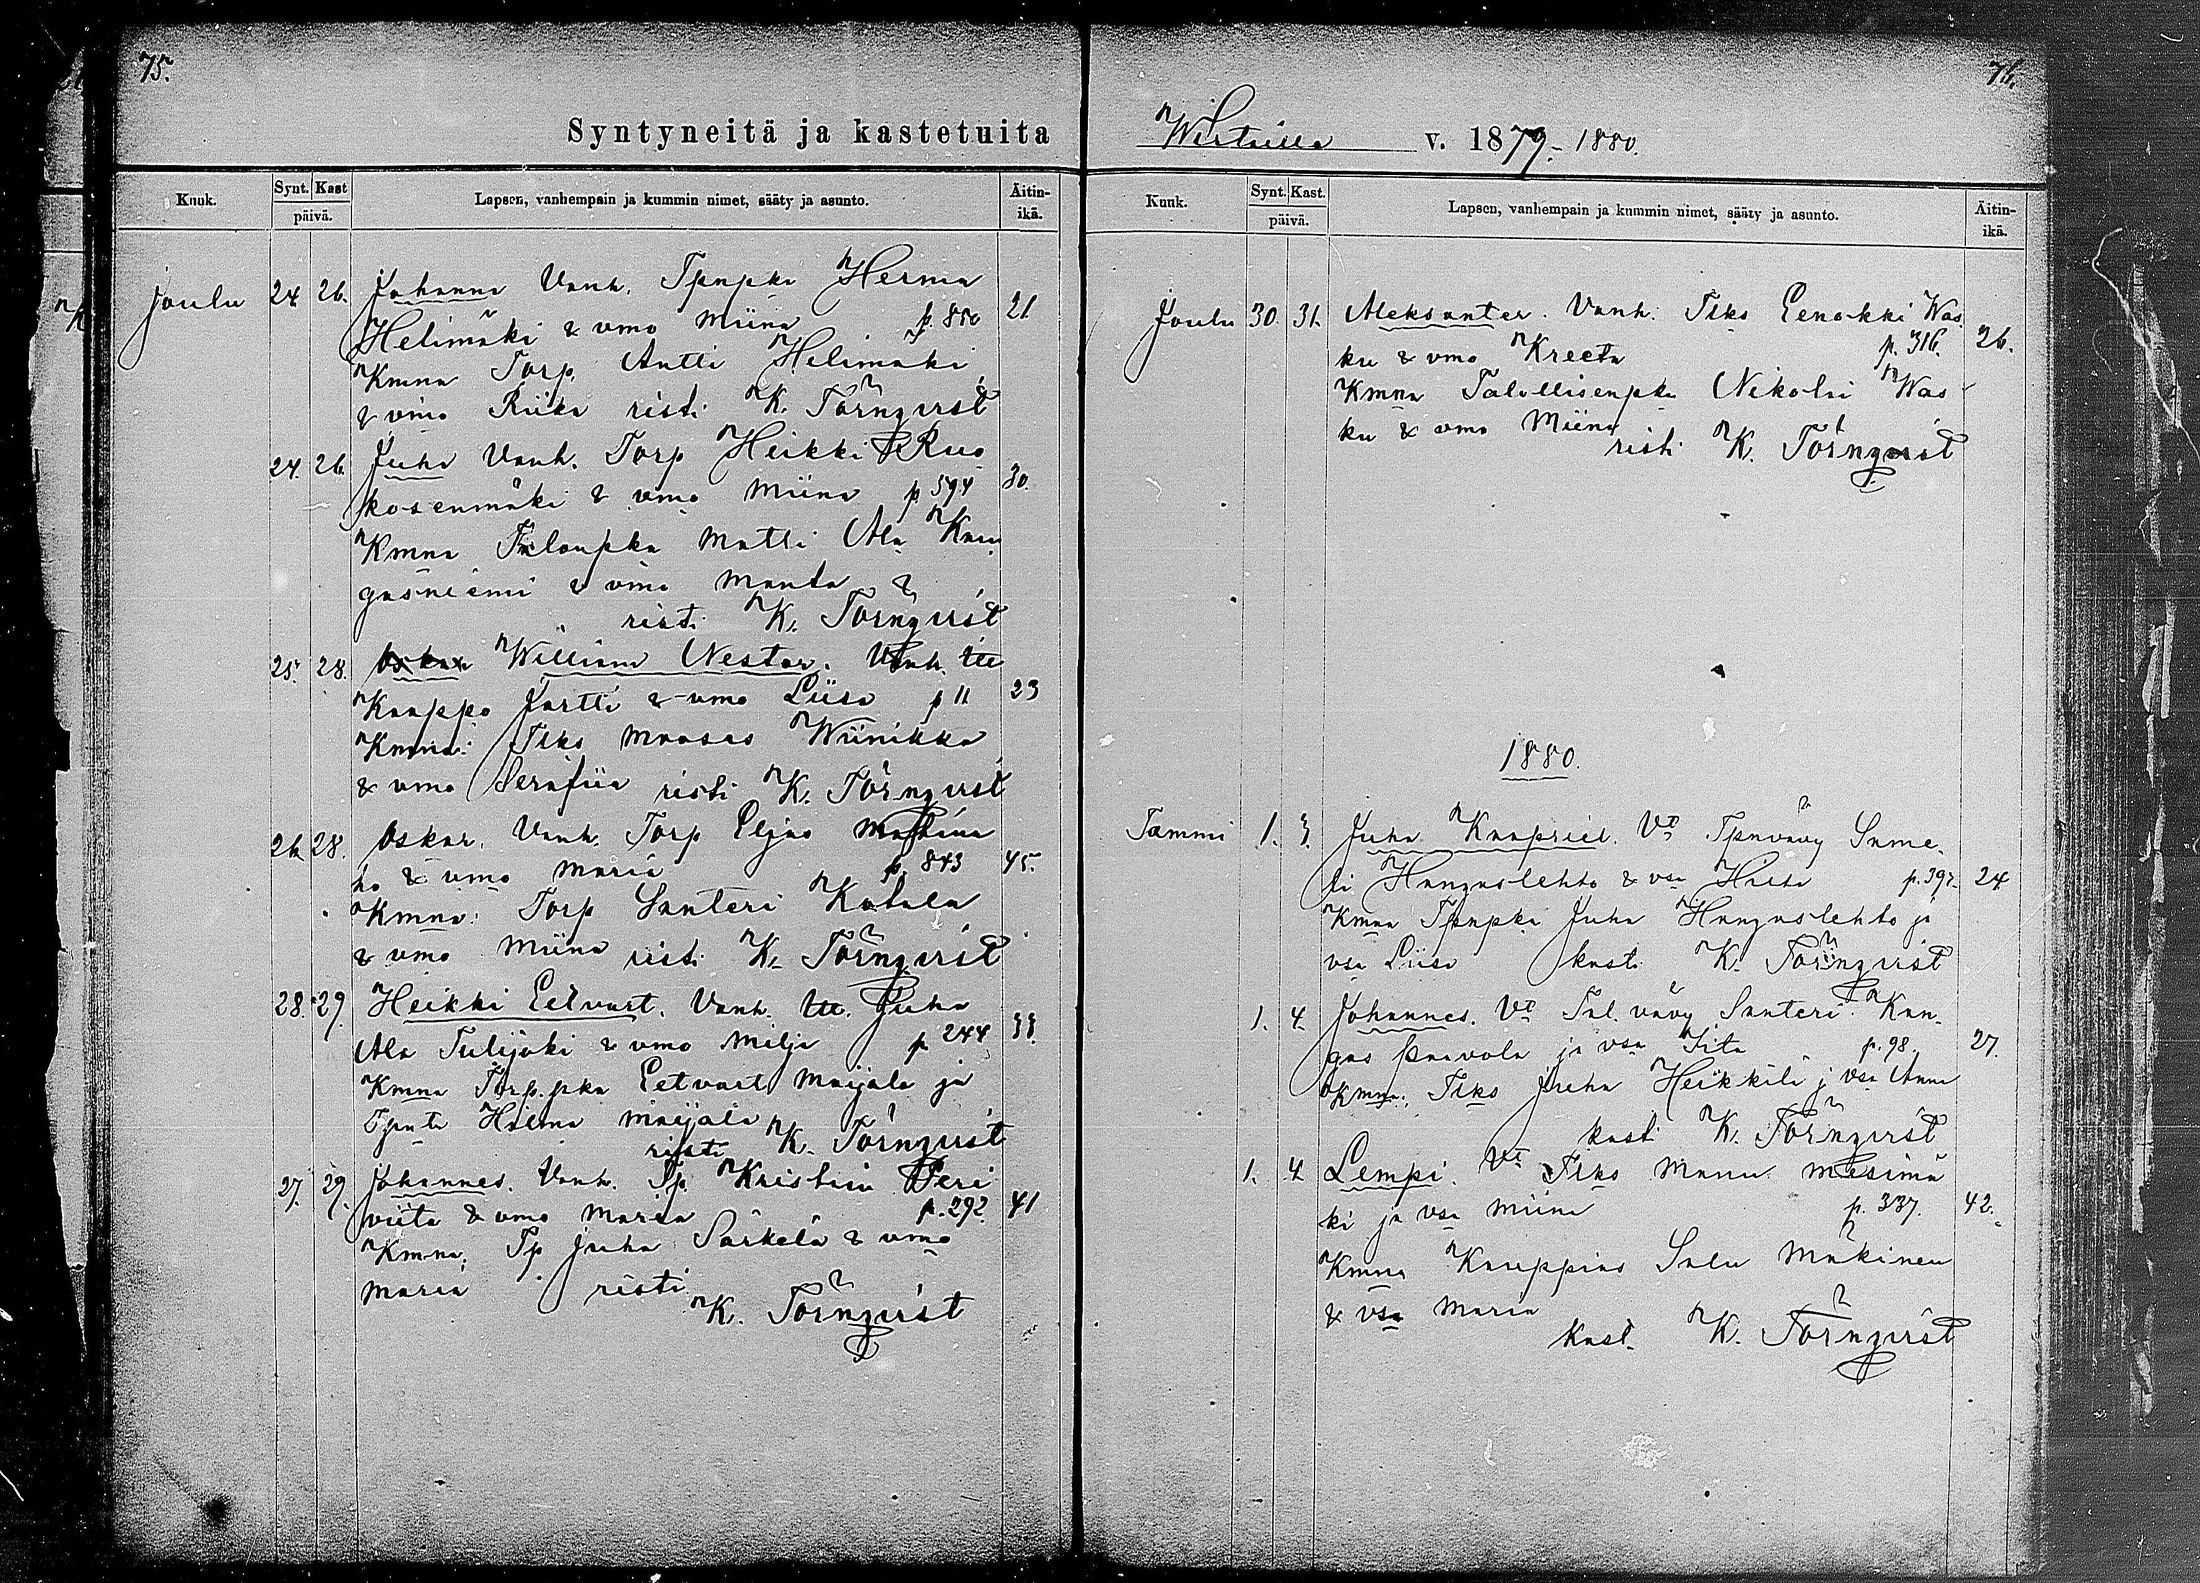 75.
Syntyneitä ja kastetuita
Kuuk.
Synt. Kast
päivä.
Lapsen, vanhempain ja kummin nimet, sääty ja asunto.
Äitin-
ikä.
Joulu 24 26. Johanna Vanh. Tpnpka Herma
Helimäki & vmo Miina p. 850 21
Kmna Torp. Antti Helimäki
& vmo Riika risti K. Törnqvist
24. 26. Juha Vanh. Torp Heikki Ruo
kosenmäki & vmo Miina p. 594 30.
Kmna Talonpka Matti Ala Kan
gasniemi & vmo Manta &
risti K. Törnqvist
25. 28. Oskar William Nestor. Vanh. Itll
Kaappo Jartti & vmo Liisa p 11 23
Kmna: Tlks Mooses Wiinikka
& vmo Serafiia risti K. Törnqvist
26. 28. Oskar. Vanh. Torp Eljas Mastina
ho & vmo Maria p. 843 45.
Kmna: Torp Santeri Katala
& vmo Miina risti K. Törnqvist
28. 29. Heikki Eetvart. Vanh. Itll. Juha
Ala Tulijoki & vmo Milja p 244 33.
Kmna Torp.pka Eetvart Maijala ja
Hilma Maijala
risti K. Törnqvist
27. 29. Johannes. Vanh. Tp. Kristian Peri
viita & vmo Maria p. 292. 41
Kmna: Tp Juha Särkelä & vmo
Maria risti
K. Törnqvist
76.
v. 1879.-1880.
Kuuk.
Synt. Kast.
päivä.
Lapsen, vanhempain ja kummin nimet, sääty ja asunto.
Äitin-
ikä.
Joulu 30. 31. Aleksanter. Vanh. Tlks Eenokki Was
ku & vmo Kreeta p. 316. 26.
Kmna Talollisenpka Nikolai Was
ku & vmo Miina
risti K. Törnqvist
1880.
Tammi 1. 3. Juha Kaapriel. Vt Tpnvävy Same
li Hangaslehto & vsa p. 397. 24
Kmna Tpnpka Juha Hangaslehto ja
vsa Liisa kast. K. Törnqvist
1. 4. Johannes. Vt Tal. vävy Santeri Kan-
gas Paavola ja vsa Iita p. 98. 27.
Kmna: Tlks Juha Heikkilä j vsa Anna
kast. K. Törnqvist
1. 4. Lempi. Vt Tlks Manu Mesimä
ki ja vsa Miina p. 337. 42.
Kmna Kauppias Salu Mäkinen
& vsa Maria
Kast. K. Törnqvist